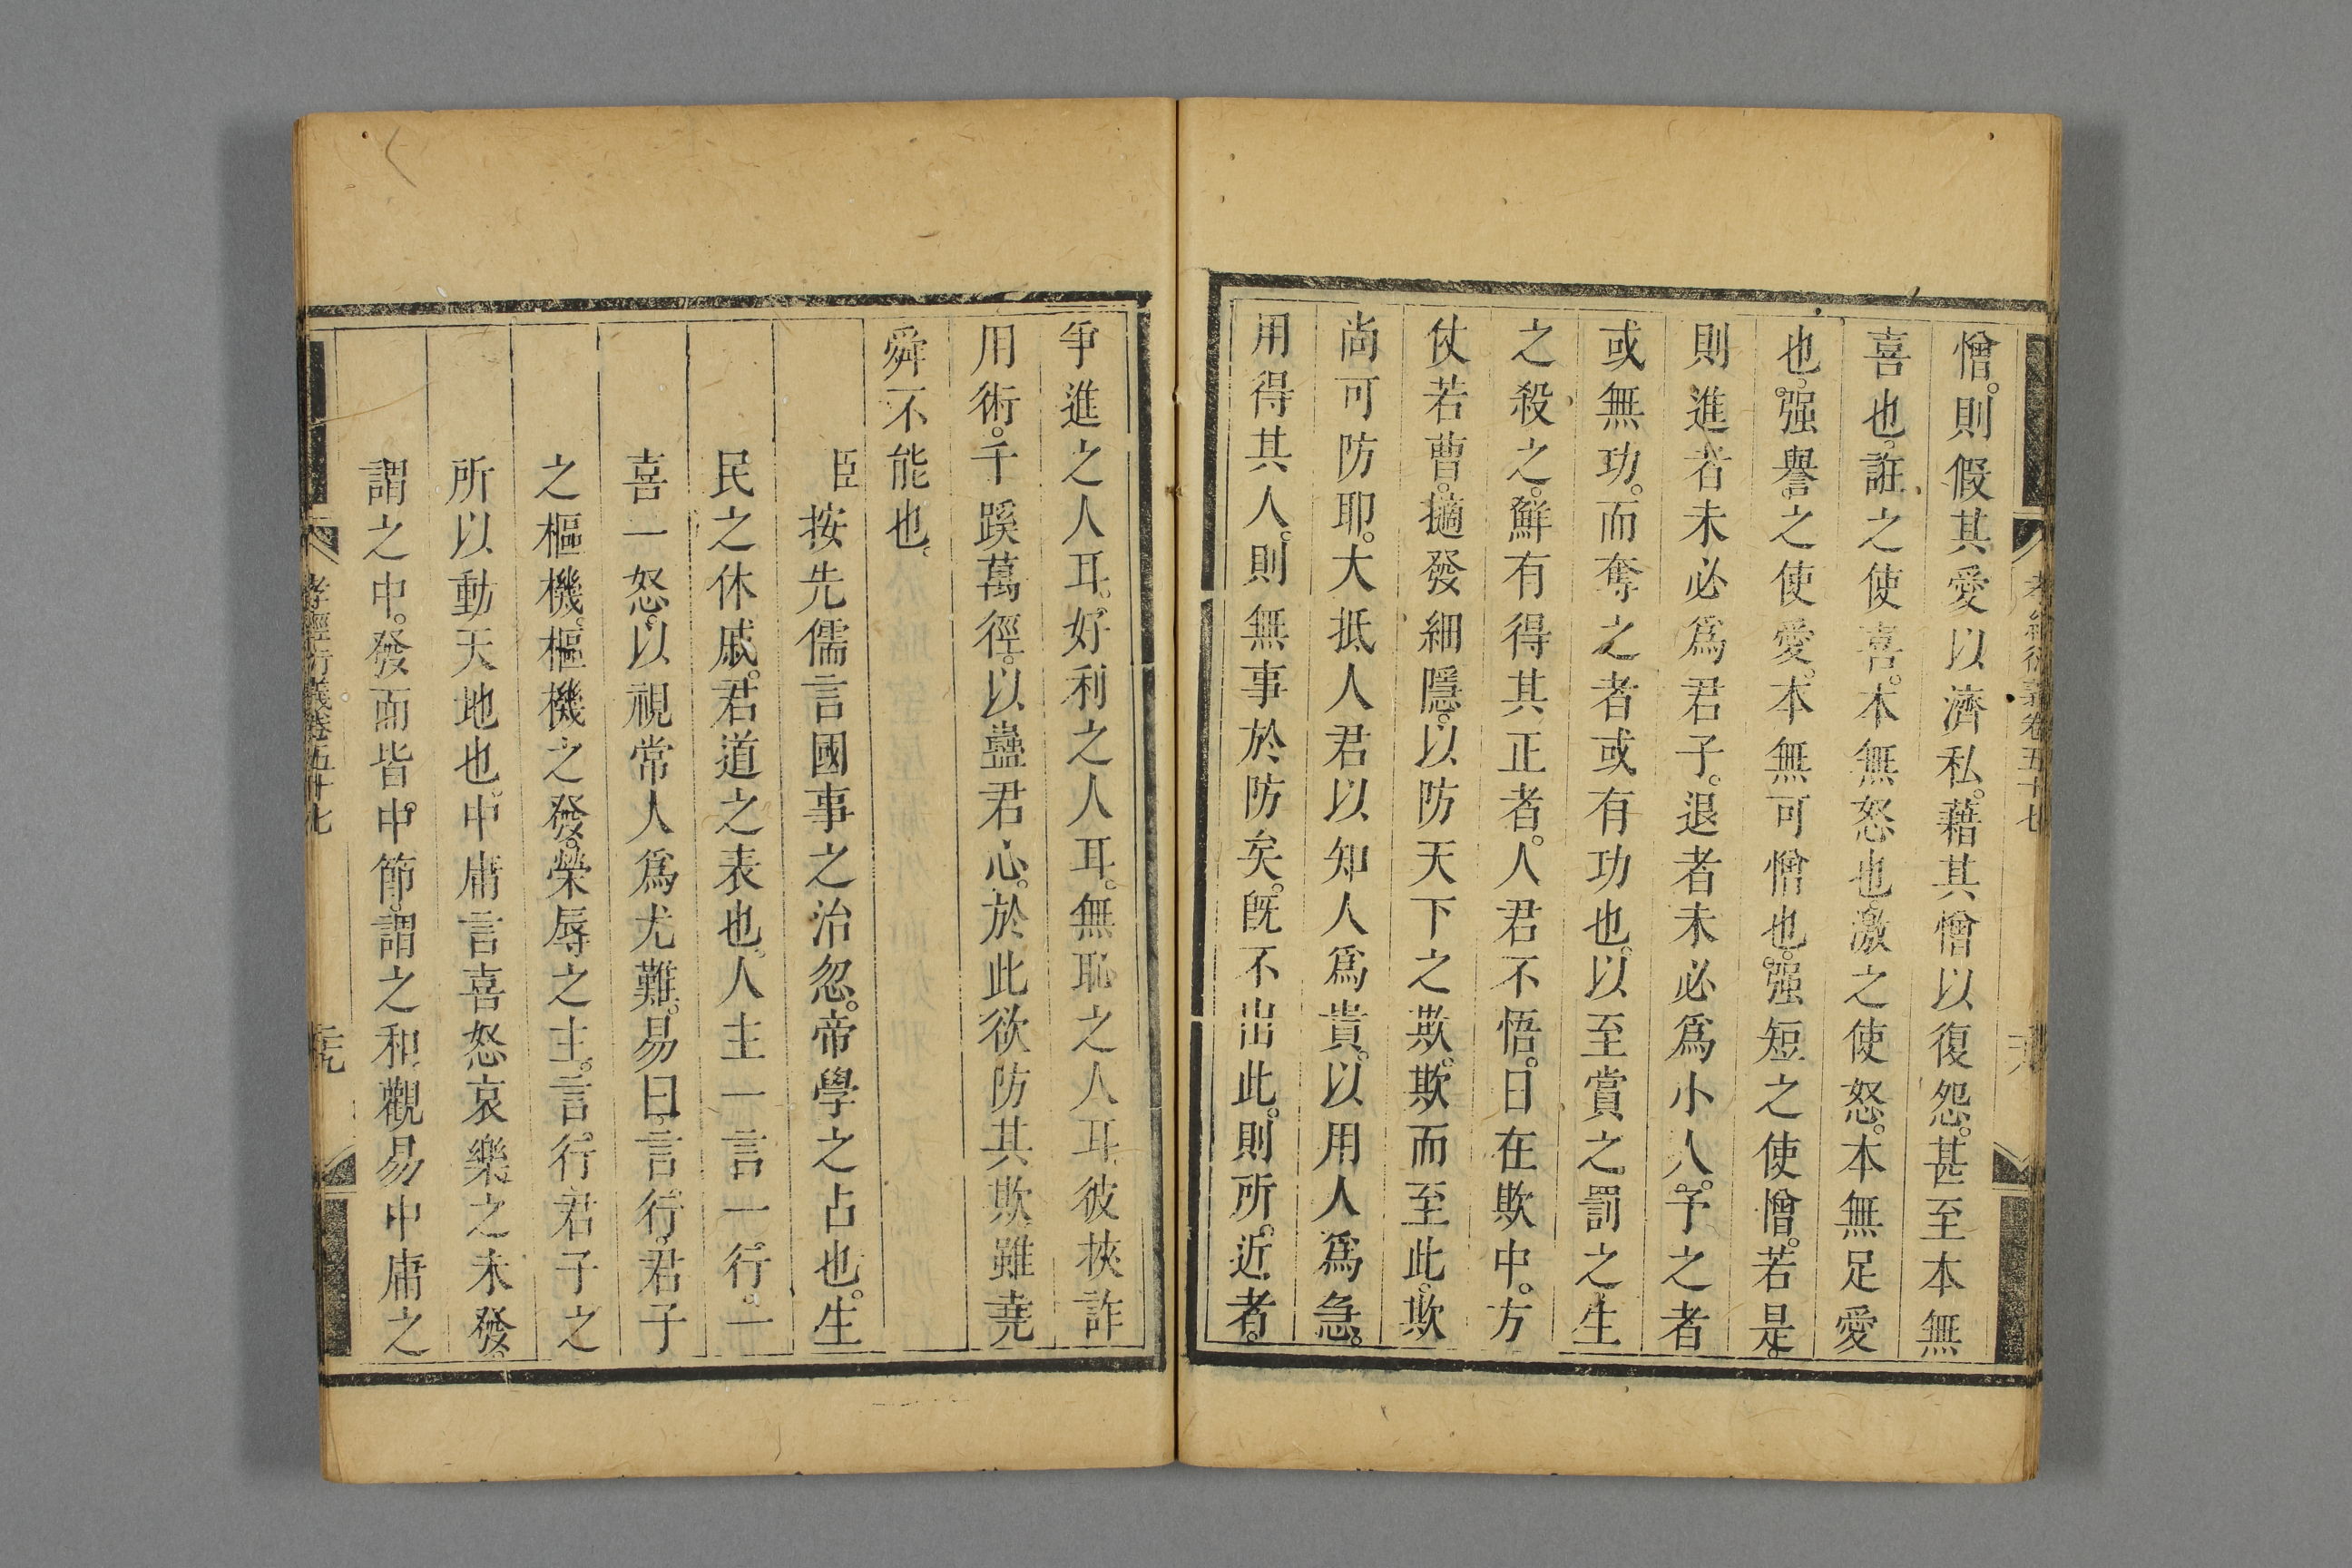 孝經衍義卷五十七
憎。則假其愛以濟私。藉其憎以復怨。甚至本無
喜也。誑之使喜。本無怒也。激之使怒。本無足愛
也。强譽之使愛。本無可憎也。强短之使憎。若是。
則進者未必爲君子。退者未必爲小人。予之者
或無功。而奪之者或有功也。以至賞之罰之生
之殺之。鮮有得其正者。人君不悟。日在欺中。方
仗若曹。擿發細隱。以防天下之欺。欺而至此。欺
尚可防耶。大抵人君以知人爲貴。以用人爲急。
用得其人。則無事於防矣。旣不出此。則所近者。
爭進之人耳。好利之人耳。無恥之人耳。彼挾詐
用術。千蹊萬徑。以蠱君心。於此欲防其欺。雖堯
舜不能也。
臣按先儒言國事之治忽。帝學之占也。生
民之休戚。君道之表也。人主一言一行。一
喜一怒。以視常人爲尤難。易曰。言行。君子
之樞機。樞機之發。榮辱之主。言行。君子之
所以動天地也。中庸言喜怒哀樂之未發。
謂之中。發而皆中節。謂之和。觀易中庸之
孝經衍義卷五十七